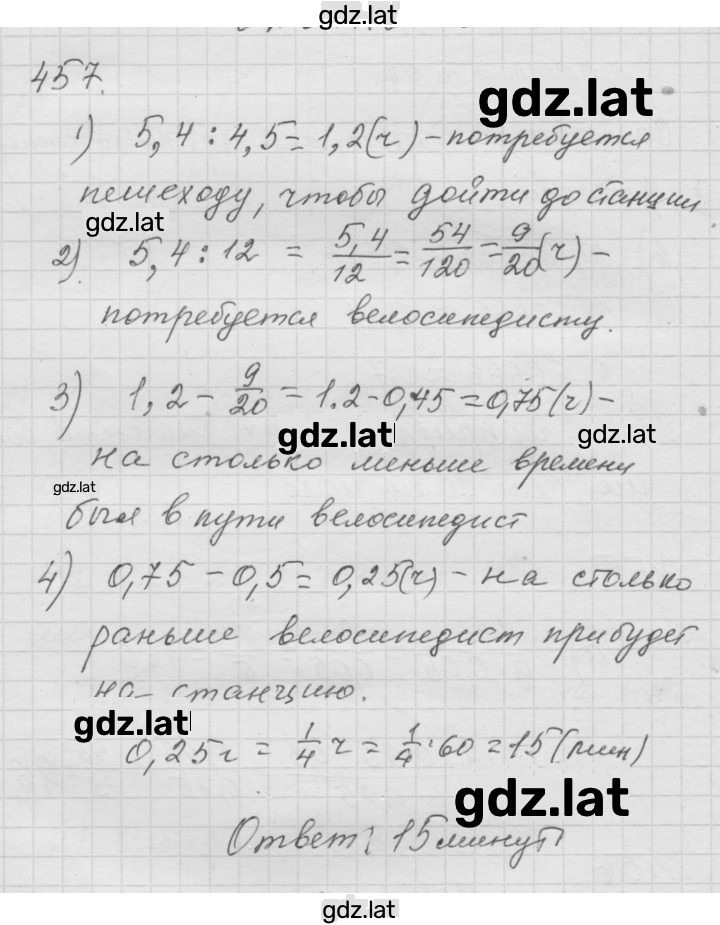 gdz.lat
457.
gdz.lat
1) 5,4 : 4,5 = 1,2(ч) – потребуется
пешеходу, чтобы дойти до станции
gdz.lat
2) 5,4 : 12 = 5,4/12 = 54/120 = 9/20 (ч) –
потребуется велосипедисту.
3) 1,2 – 9/20 = 1.2 - 0,45 = 0,75(ч) –
gdz.lat gdz.lat
на столько меньше времени
gdz.lat
был в пути велосипедист
4) 0,75 – 0,5 = 0,25(ч) – на столько
раньше велосипедист прибудет
на станцию.
gdz.lat
0,25ч = 1/4 ч = 1/4 · 60 = 15 (мин)
gdz.lat
Ответ: 15 минут
gdz.lat